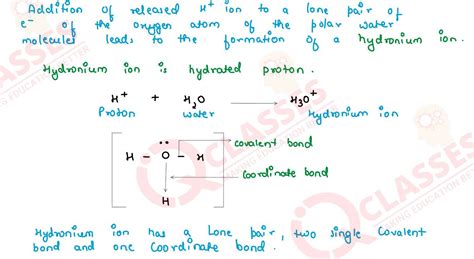 Addition of released H⁺ ion to a lone pair of
e⁻ of the oxygen atom of the polar water
molecules leads to the formation of a hydronium ion.
Hydronium ion is hydrated proton.
H⁺ + H₂O ⟶ H₃O⁺
Proton water Hydronium ion
covalent bond
H – O – H
Coordinate bond
H
Hydronium ion has a Lone pair, two single Covalent
bond and one Coordinate bond.
IQ CLASSES
MAKING EDUCATION BETTER